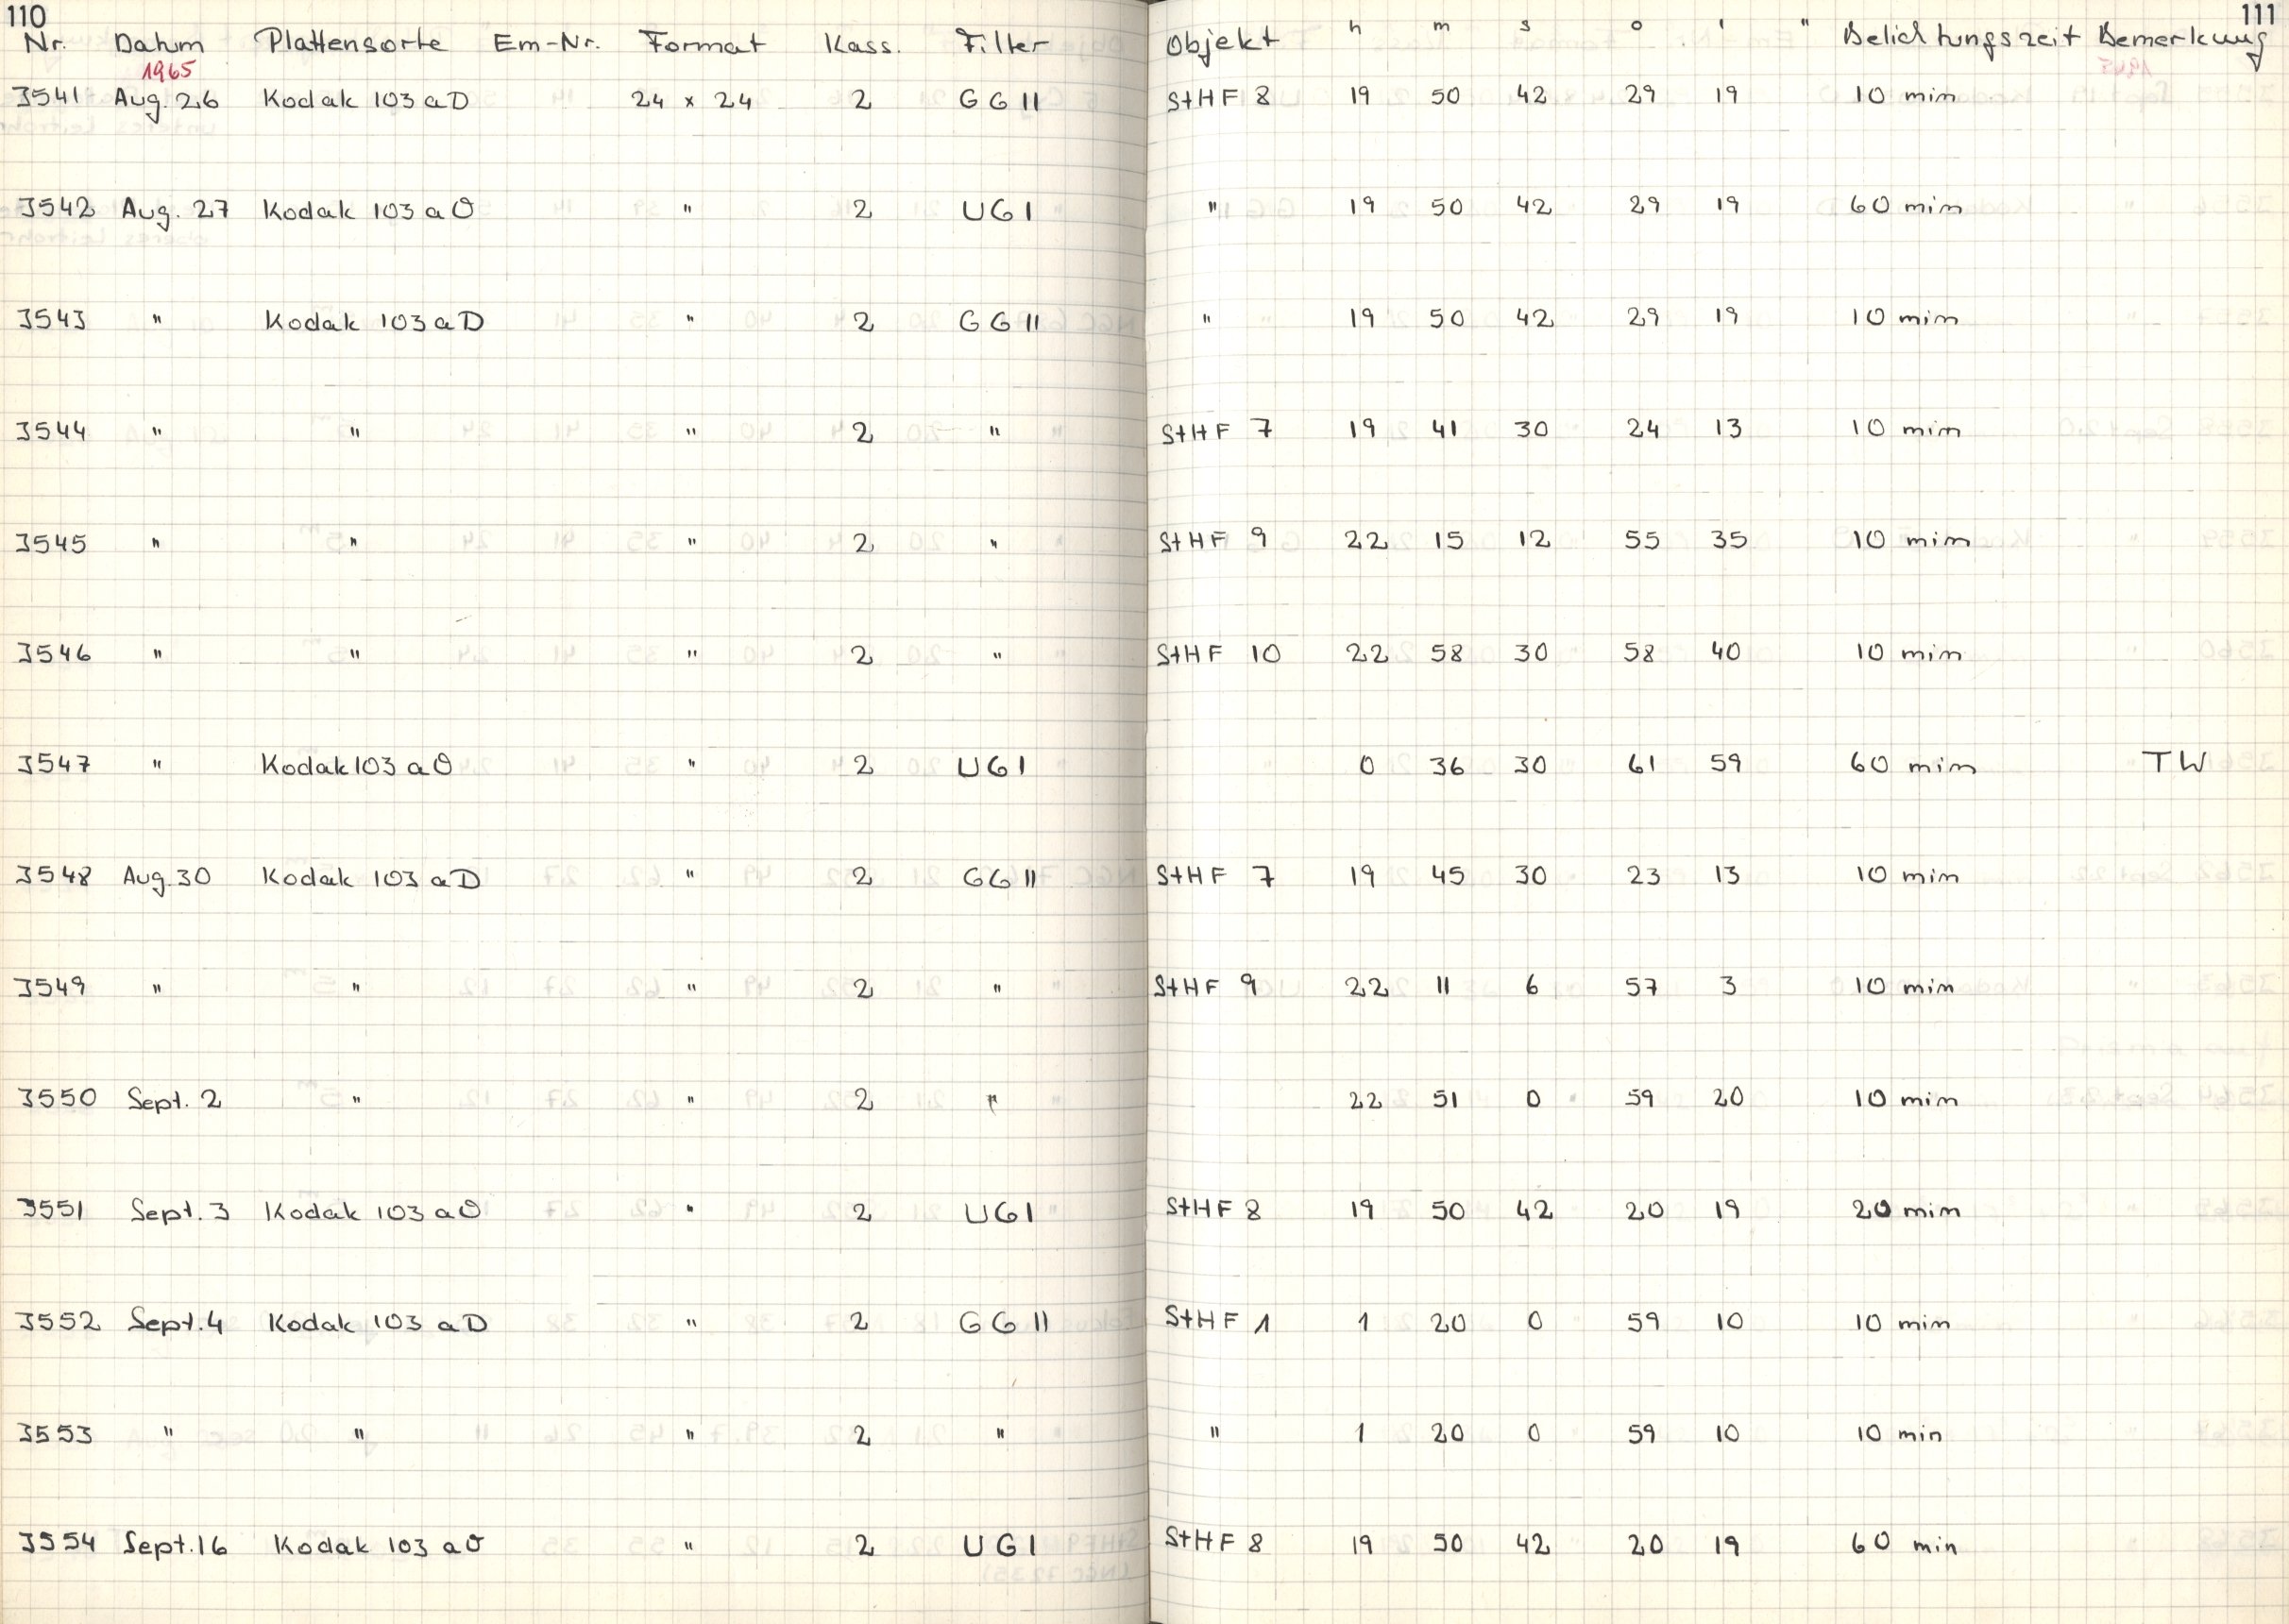 110 111
Nr. Datum Plattensorte Em-Nr. Format Kass. Filter Objekt h m s o ' " Belichtungszeit Bemerkung
1965
3541 Aug. 26 Kodak 103 aD 24 x 24 2 GG 11 StHF 8 19 50 42 29 19 10 min
3542 Aug. 27 Kodak 103 aO " 2 UG1 " 19 50 42 29 19 60 min
3543 " Kodak 103 aD " 2 GG 11 " 19 50 42 29 19 10 min
3544 " " " 2 " StHF 7 19 41 30 24 13 10 min
3545 " " " 2 " StHF 9 22 15 12 55 35 10 min
3546 " " " 2 " StHF 10 22 58 30 58 40 10 min
3547 " Kodak 103 aO " 2 UG1 0 36 30 61 59 60 min TW
3548 Aug. 30 Kodak 103 aD " 2 GG 11 StHF 7 19 45 30 23 13 10 min
3549 " " " 2 " StHF 9 22 11 6 57 3 10 min
3550 Sept. 2 " " 2 " 22 51 0 59 20 10 min
3551 Sept. 3 Kodak 103 aO " 2 UG1 StHF 8 19 50 42 20 19 20 min
3552 Sept. 4 Kodak 103 aD " 2 GG 11 StHF 1 1 20 0 59 10 10 min
3553 " " " 2 " " 1 20 0 59 10 10 min
3554 Sept. 16 Kodak 103 aO " 2 UG1 StHF 8 19 50 42 20 19 60 min